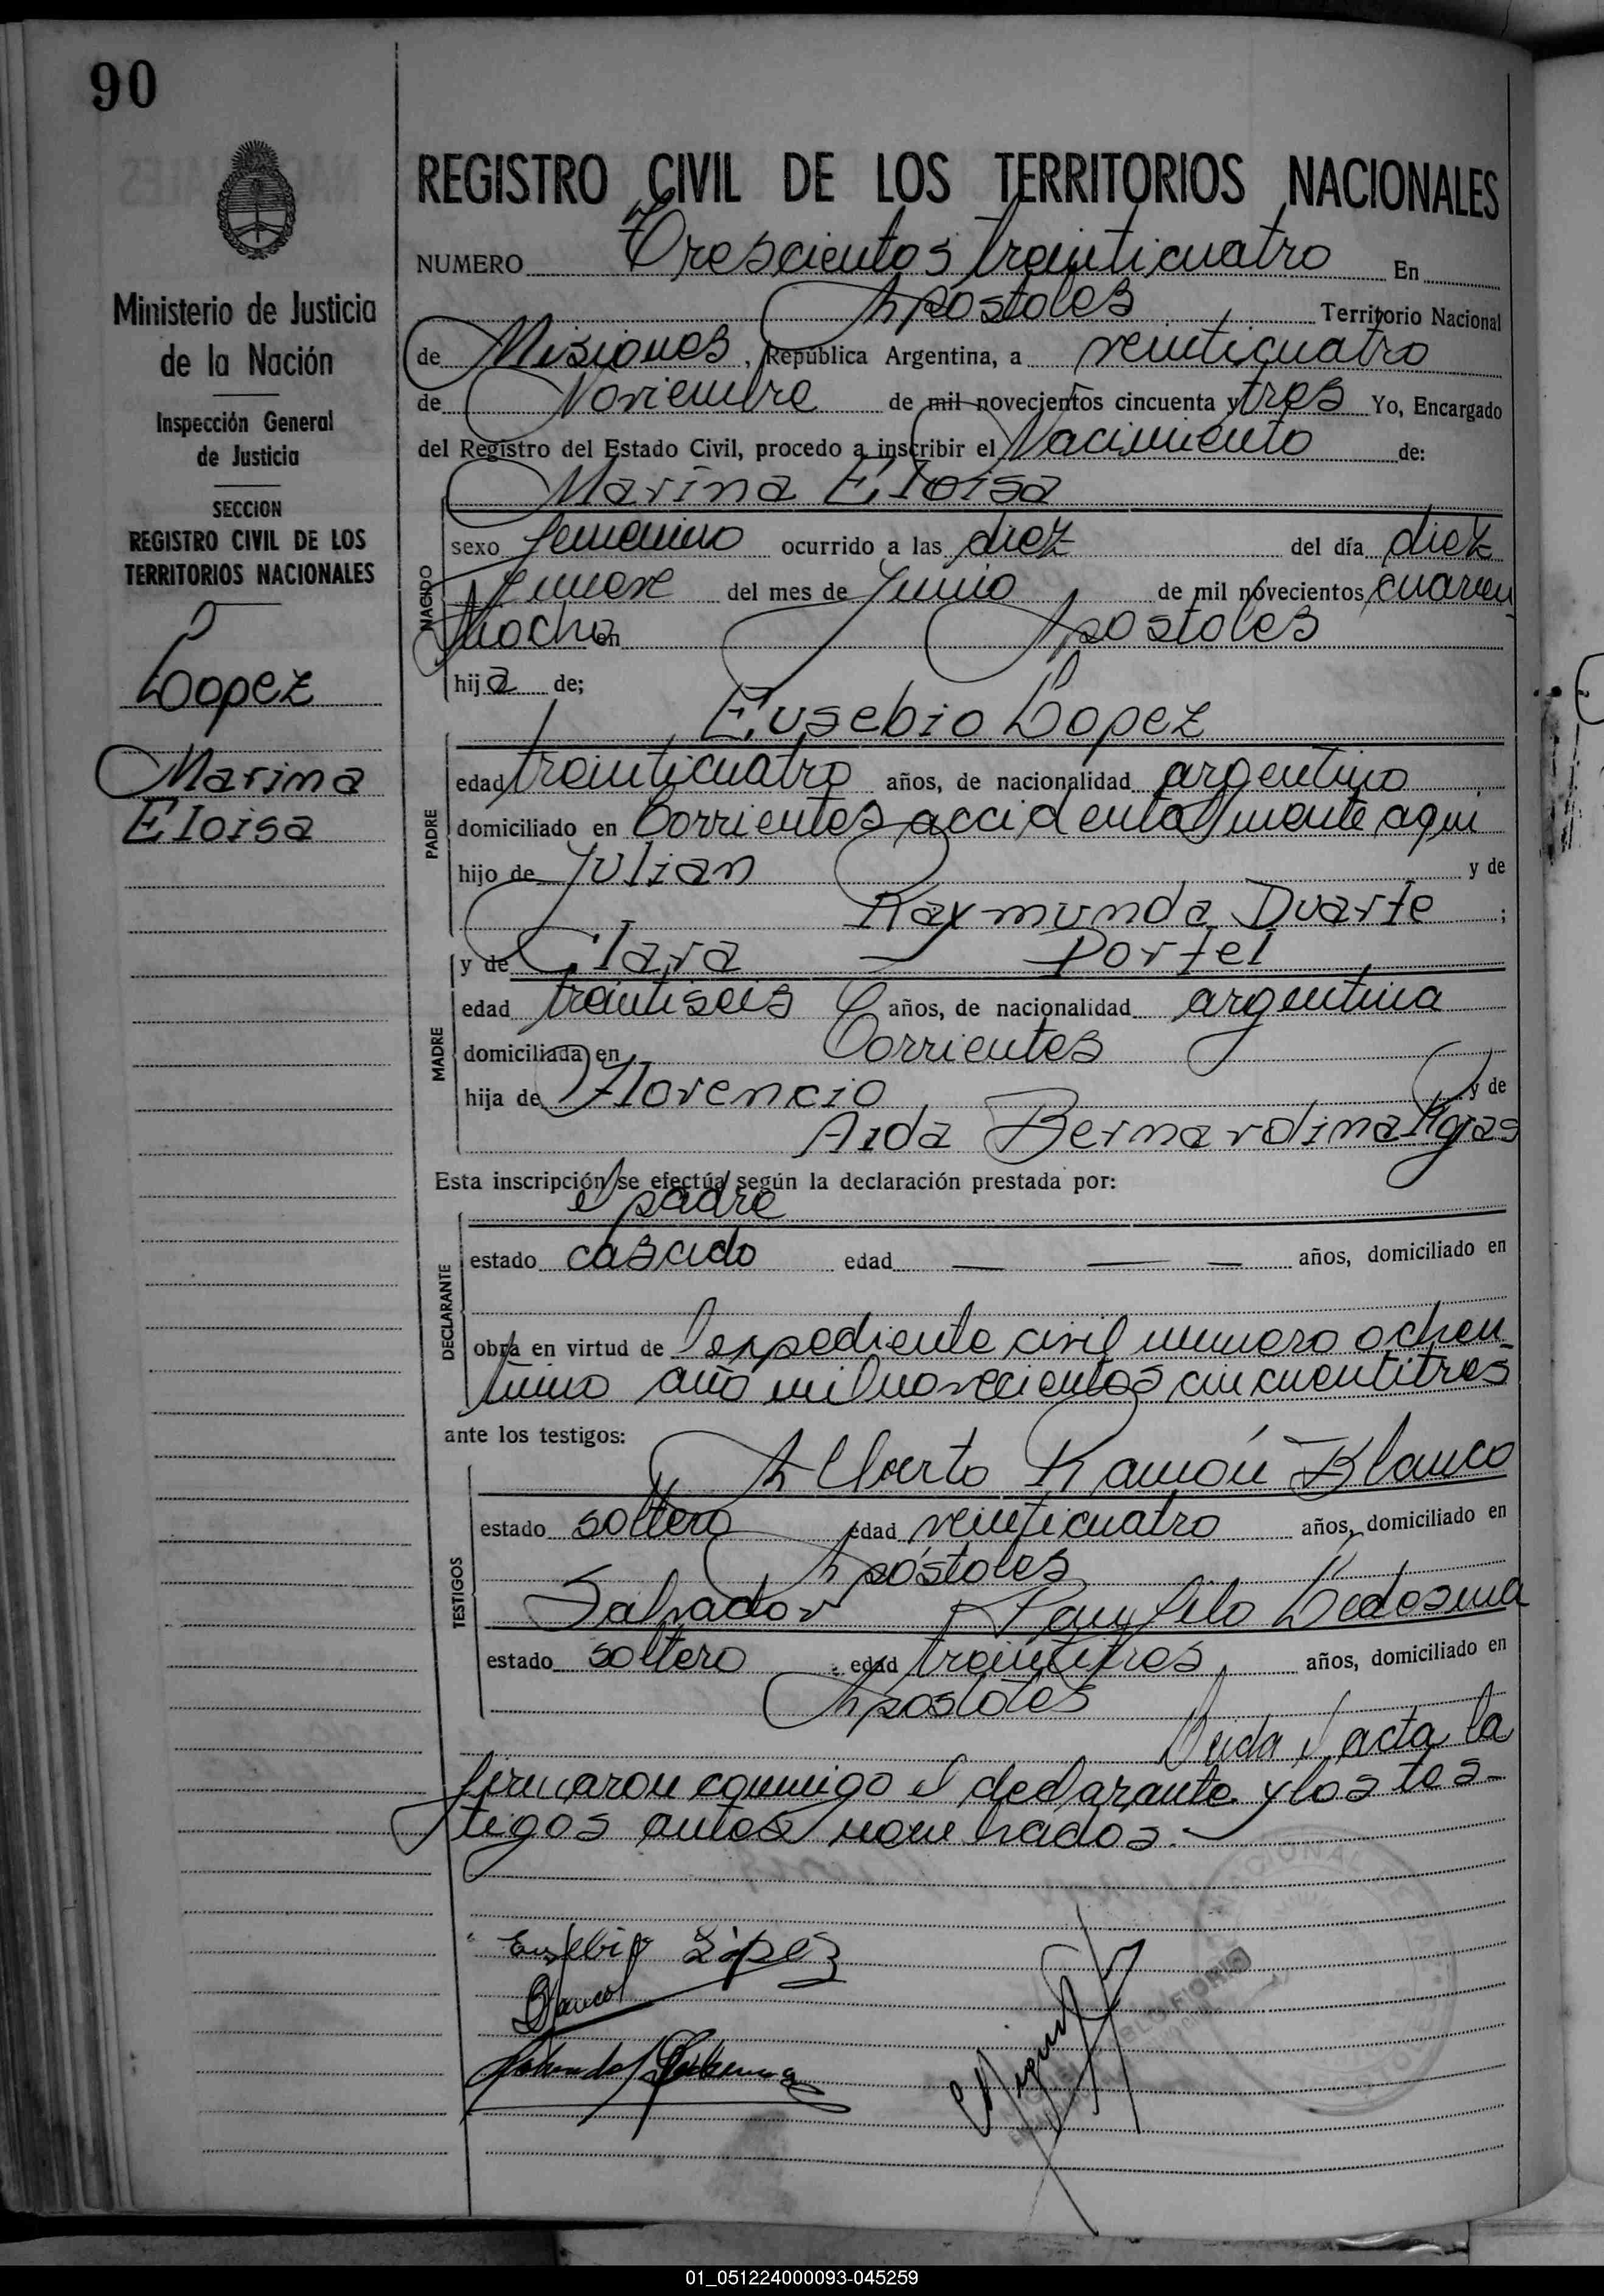 90
REGISTRO CIVIL DE LOS TERRITORIOS NACIONALES
NUMERO Trescientos treinticuatro En
Apostoles Territorio Nacional
de Misiones, República Argentina, a veinticuatro
de Noviembre de mil novecientos cincuenta y tres Yo, Encargado
del Registro del Estado Civil, procedo a inscribir el Nacimiento de:
Marina Eloisa
NACIDO
sexo femenino ocurrido a las diez del día diez
y nueve del mes de Junio de mil novecientos cuaren
tiocho en Apostoles
hija de;
Eusebio Lopez
PADRE
edad treinticuatro años, de nacionalidad argentino
domiciliado en Corrientes accidentalmente aqui
hijo de Julian y de
Raymunda Duarte ;
y de Clara — Portel
MADRE
edad treintiseis años, de nacionalidad argentina
domiciliada en Corrientes
hija de Florencio y de
Aida Bernardina Rojas
Esta inscripción se efectúa según la declaración prestada por:
el padre
DECLARANTE
estado casado edad — — — años, domiciliado en
obra en virtud de expediente civil numero ochen-
tiuno año mil novecientos cincuentitres
ante los testigos:
Alberto Ramón Blanco
TESTIGOS
estado soltero edad veinticuatro años, domiciliado en
Apóstoles
Salvador Panfilo Ledesma
estado soltero edad treintitres años, domiciliado en
Apostoles
Leida el acta la
firmaron conmigo el declarante y los tes-
tigos antes nombrados.-
Eusebio López
Blanco
Ledesma
Ministerio de Justicia
de la Nación
Inspección General
de Justicia
SECCION
REGISTRO CIVIL DE LOS
TERRITORIOS NACIONALES
Lopez
Marina
Eloisa
01_051224000093-045259